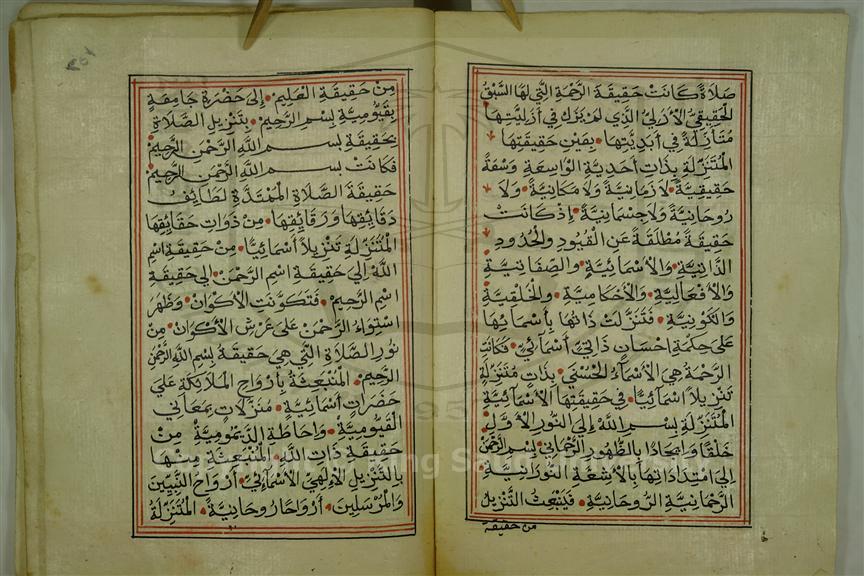 صَلَاةً كَانَتْ حَقِيقَةَ الرَّحْمَةِ الَّتِي لَهَا السَّبْقُ
الْحَقِيقِيُّ الْأَزَلِيُّ الَّذِي لَمْ يَزَلْ فِي أَزَلِيَّتِهَا
مُتَأَزِّلَةً فِي أَبَدِيَّتِهَا • بِعَيْنِ حَقِيقَتِهَا
الْمُتَنَزِّلَةِ بِذَاتِ أَحَدِيَّةِ الْوَاسِعَةِ وِسْعَةً
حَقِيقِيَّةً • لَا زَمَانِيَّةً وَلَا مَكَانِيَّةً • وَلَا
رُوحَانِيَّةً وَلَا جِسْمَانِيَّةً • إِذْ كَانَتْ
حَقِيقَةً مُطْلَقَةً عَنِ الْقُيُودِ وَالْحُدُودِ
الذَّاتِيَّةِ • وَالْأَسْمَائِيَّةِ • وَالصِّفَاتِيَّةِ
وَالْأَفْعَالِيَّةِ • وَالْأَحْكَامِيَّةِ • وَالْخَلْقِيَّةِ
وَالْكَوْنِيَّةِ • فَتَنَزَّلَتْ ذَاتُهَا بِأَسْمَائِهَا
عَلَى حِكْمَةِ إِحْسَانٍ ذَاتِيٍّ أَسْمَائِيٍّ • فَكَانَتِ
الرَّحْمَةُ هِيَ الْأَسْمَاءُ الْحُسْنَى • بِذَاتٍ مُتَنَزِّلَةٍ
تَنْزِيلًا أَسْمَائِيًّا • فِي حَقِيقَتِهَا الْأَسْمَائِيَّةِ
الْمُتَنَزِّلَةِ بِسْمِ اللَّهِ إِلَى النُّورِ الْأَوَّلِ
خَلْقًا وَإِيجَادًا بِالظُّهُورِ الرَّحْمَانِيِّ • بِسْمِ الرَّحْمٰنِ
إِلَى امْتِدَادَاتِهَا بِالْأَشِعَّةِ النُّورَانِيَّةِ
الرَّحْمَانِيَّةِ الرُّوحَانِيَّةِ • فَيَنْبَعِثُ التَّنْزِيلُ
من حقيقة
مِنْ حَقِيقَةِ الْعَلِيمِ • إِلَى حَضْرَةٍ جَامِعَةٍ
بِقَيُّومِيَّةِ بِسْمِ الرَّحِيمِ • بِتَنْزِيلِ الصَّلَاةِ
بِحَقِيقَةِ بِسْمِ اللَّهِ الرَّحْمٰنِ الرَّحِيمِ
فَكَانَتْ بِسْمِ اللَّهِ الرَّحْمٰنِ الرَّحِيمِ
حَقِيقَةَ الصَّلَاةِ الْمُمْتَدَّةِ لَطَائِفُ
دَقَائِقِهَا وَرَقَائِقِهَا • مِنْ ذَوَاتِ حَقَائِقِهَا
الْمُتَنَزِّلَةِ تَنْزِيلًا أَسْمَائِيًّا • مِنْ حَقِيقَةِ اسْمِ
اللَّهِ إِلَى حَقِيقَةِ اسْمِ الرَّحْمٰنِ • إِلَى حَقِيقَةِ
اسْمِ الرَّحِيمِ • فَتَكَوَّنَتِ الْأَكْوَانُ • وَظَهَرَ
اسْتِوَاءُ الرَّحْمٰنِ عَلَى عَرْشِ الْأَكْوَانِ • مِنْ
نُورِ الصَّلَاةِ الَّتِي هِيَ حَقِيقَةُ بِسْمِ اللَّهِ الرَّحْمٰنِ
الرَّحِيمِ • الْمُنْبَعِثَةُ بِأَرْوَاحِ الْمَلَائِكَةِ عَلَى
حَضَرَاتٍ أَسْمَائِيَّةٍ • مُتَنَزِّلَاتٍ بِمَعَانِي
الْقَيُّومِيَّةِ • وَإِحَاطَةِ الدَّيْمُومِيَّةِ مِنْ
حَقِيقَةِ ذَاتِ اللَّهِ • الْمُنْبَعِثَةِ مِنْهَا
بِالتَّنْزِيلِ الْإِلٰهِيِّ الْأَسْمَائِيِّ • أَرْوَاحُ النَّبِيِّينَ
وَالْمُرْسَلِينَ • أَرْوَاحًا رُوحَانِيَّةً • الْمُتَنَزِّلَةُ